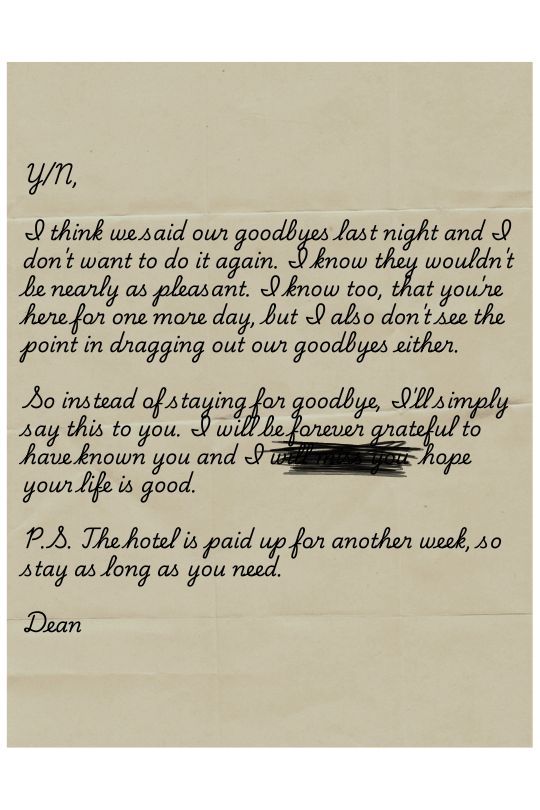 Y/N,
I think we said our goodbyes last night and I
don't want to do it again. I know they wouldn't
be nearly as pleasant. I know too, that you're
here for one more day, but I also don't see the
point in dragging out our goodbyes either.
So instead of staying for goodbye, I'll simply
say this to you. I will be forever grateful to
have known you and I will miss you hope
your life is good.
P.S. The hotel is paid up for another week, so
stay as long as you need.
Dean